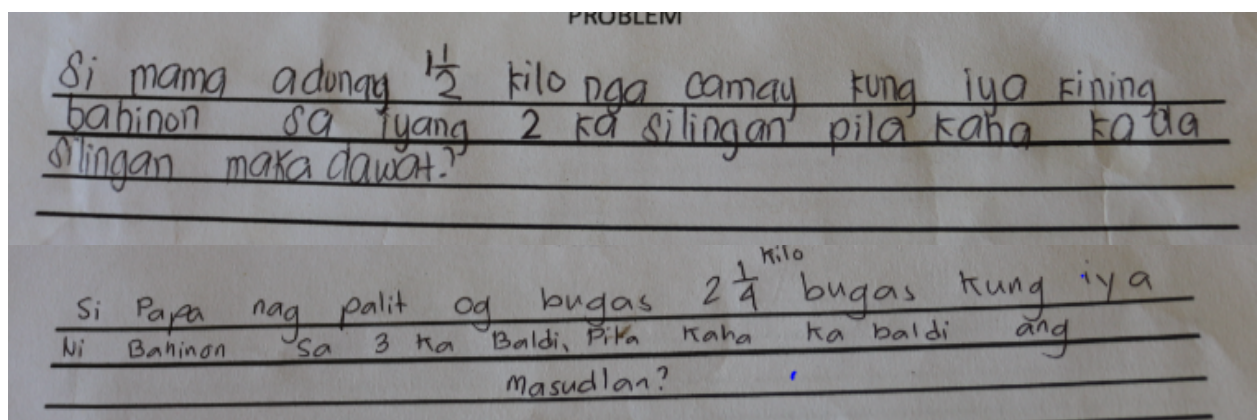 PROBLEM
Si mama adunay 1 1/2 kilo nga camay kung iya kining
bahinon sa iyang 2 ka silingan pila kaha kada
silingan maka dawat?
Si Papa nag palit og bugas 2 1/4 kilo bugas kung iya
Ni Bahinon sa 3 ka Baldi, Pila kaha ka baldi ang
masudlan?